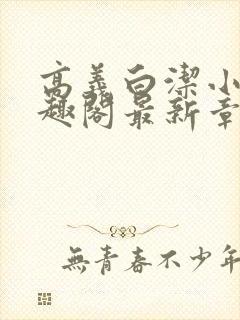 高義白潔小
趣閣最新章
無青春不少年